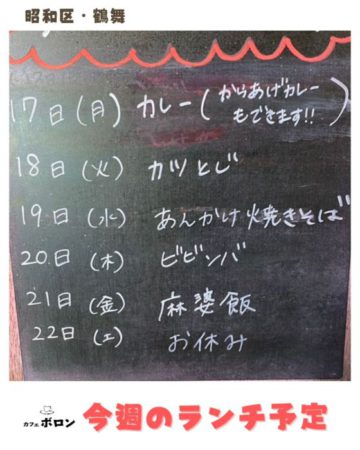 昭和区・鶴舞
17日(月) カレー(からあげカレー
もできます!!)
18日(火) カツとじ
19日(水) あんかけ焼きそば
20日(木) ビビンバ
21日(金) 麻婆飯
22日(土) お休み
カフェ ボロン 今週のランチ予定